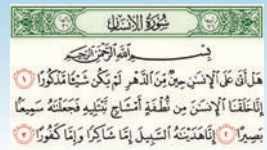 سُورَةُ الْإِنْسَانِ
بِسْمِ اللَّهِ الرَّحْمَٰنِ الرَّحِيمِ
هَلْ أَتَىٰ عَلَى الْإِنسَٰنِ حِينٌ مِّنَ الدَّهْرِ لَمْ يَكُن شَيْـًٔا مَّذْكُورًا ۝١
إِنَّا خَلَقْنَا الْإِنسَٰنَ مِن نُّطْفَةٍ أَمْشَاجٍ نَّبْتَلِيهِ فَجَعَلْنَٰهُ سَمِيعًۢا
بَصِيرًا ۝٢ إِنَّا هَدَيْنَٰهُ السَّبِيلَ إِمَّا شَاكِرًا وَإِمَّا كَفُورًا ۝٣